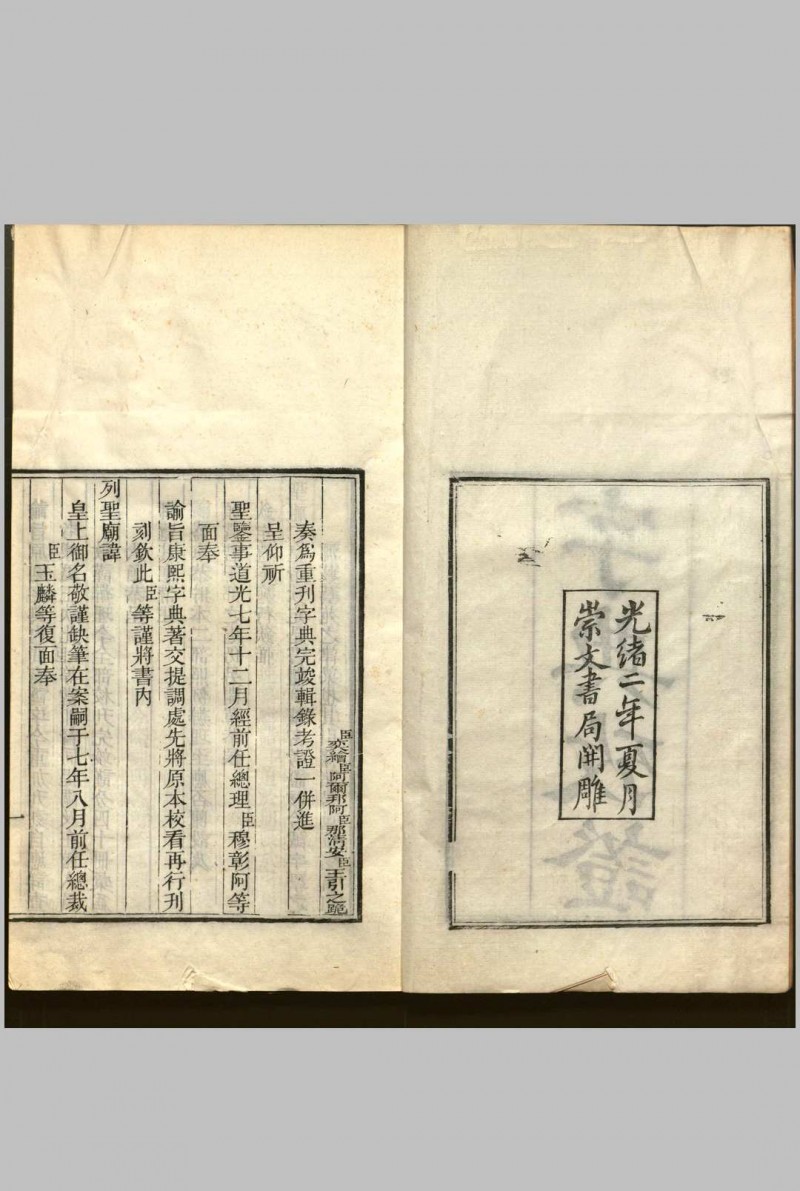 光緒二年夏月
崇文書局開雕
臣奕繪臣阿爾邦阿臣那清安臣王引之跪
奏爲重刊字典完竣輯錄考證一併進
呈仰祈
聖鑒事道光七年十二月經前任總理臣穆彰阿等
面奉
諭旨康熙字典著交提調處先將原本校看再行刊
刻欽此臣等謹將書內
列聖廟諱
皇上御名敬謹缺筆在案嗣于七年八月前任總裁
臣玉麟等復面奉